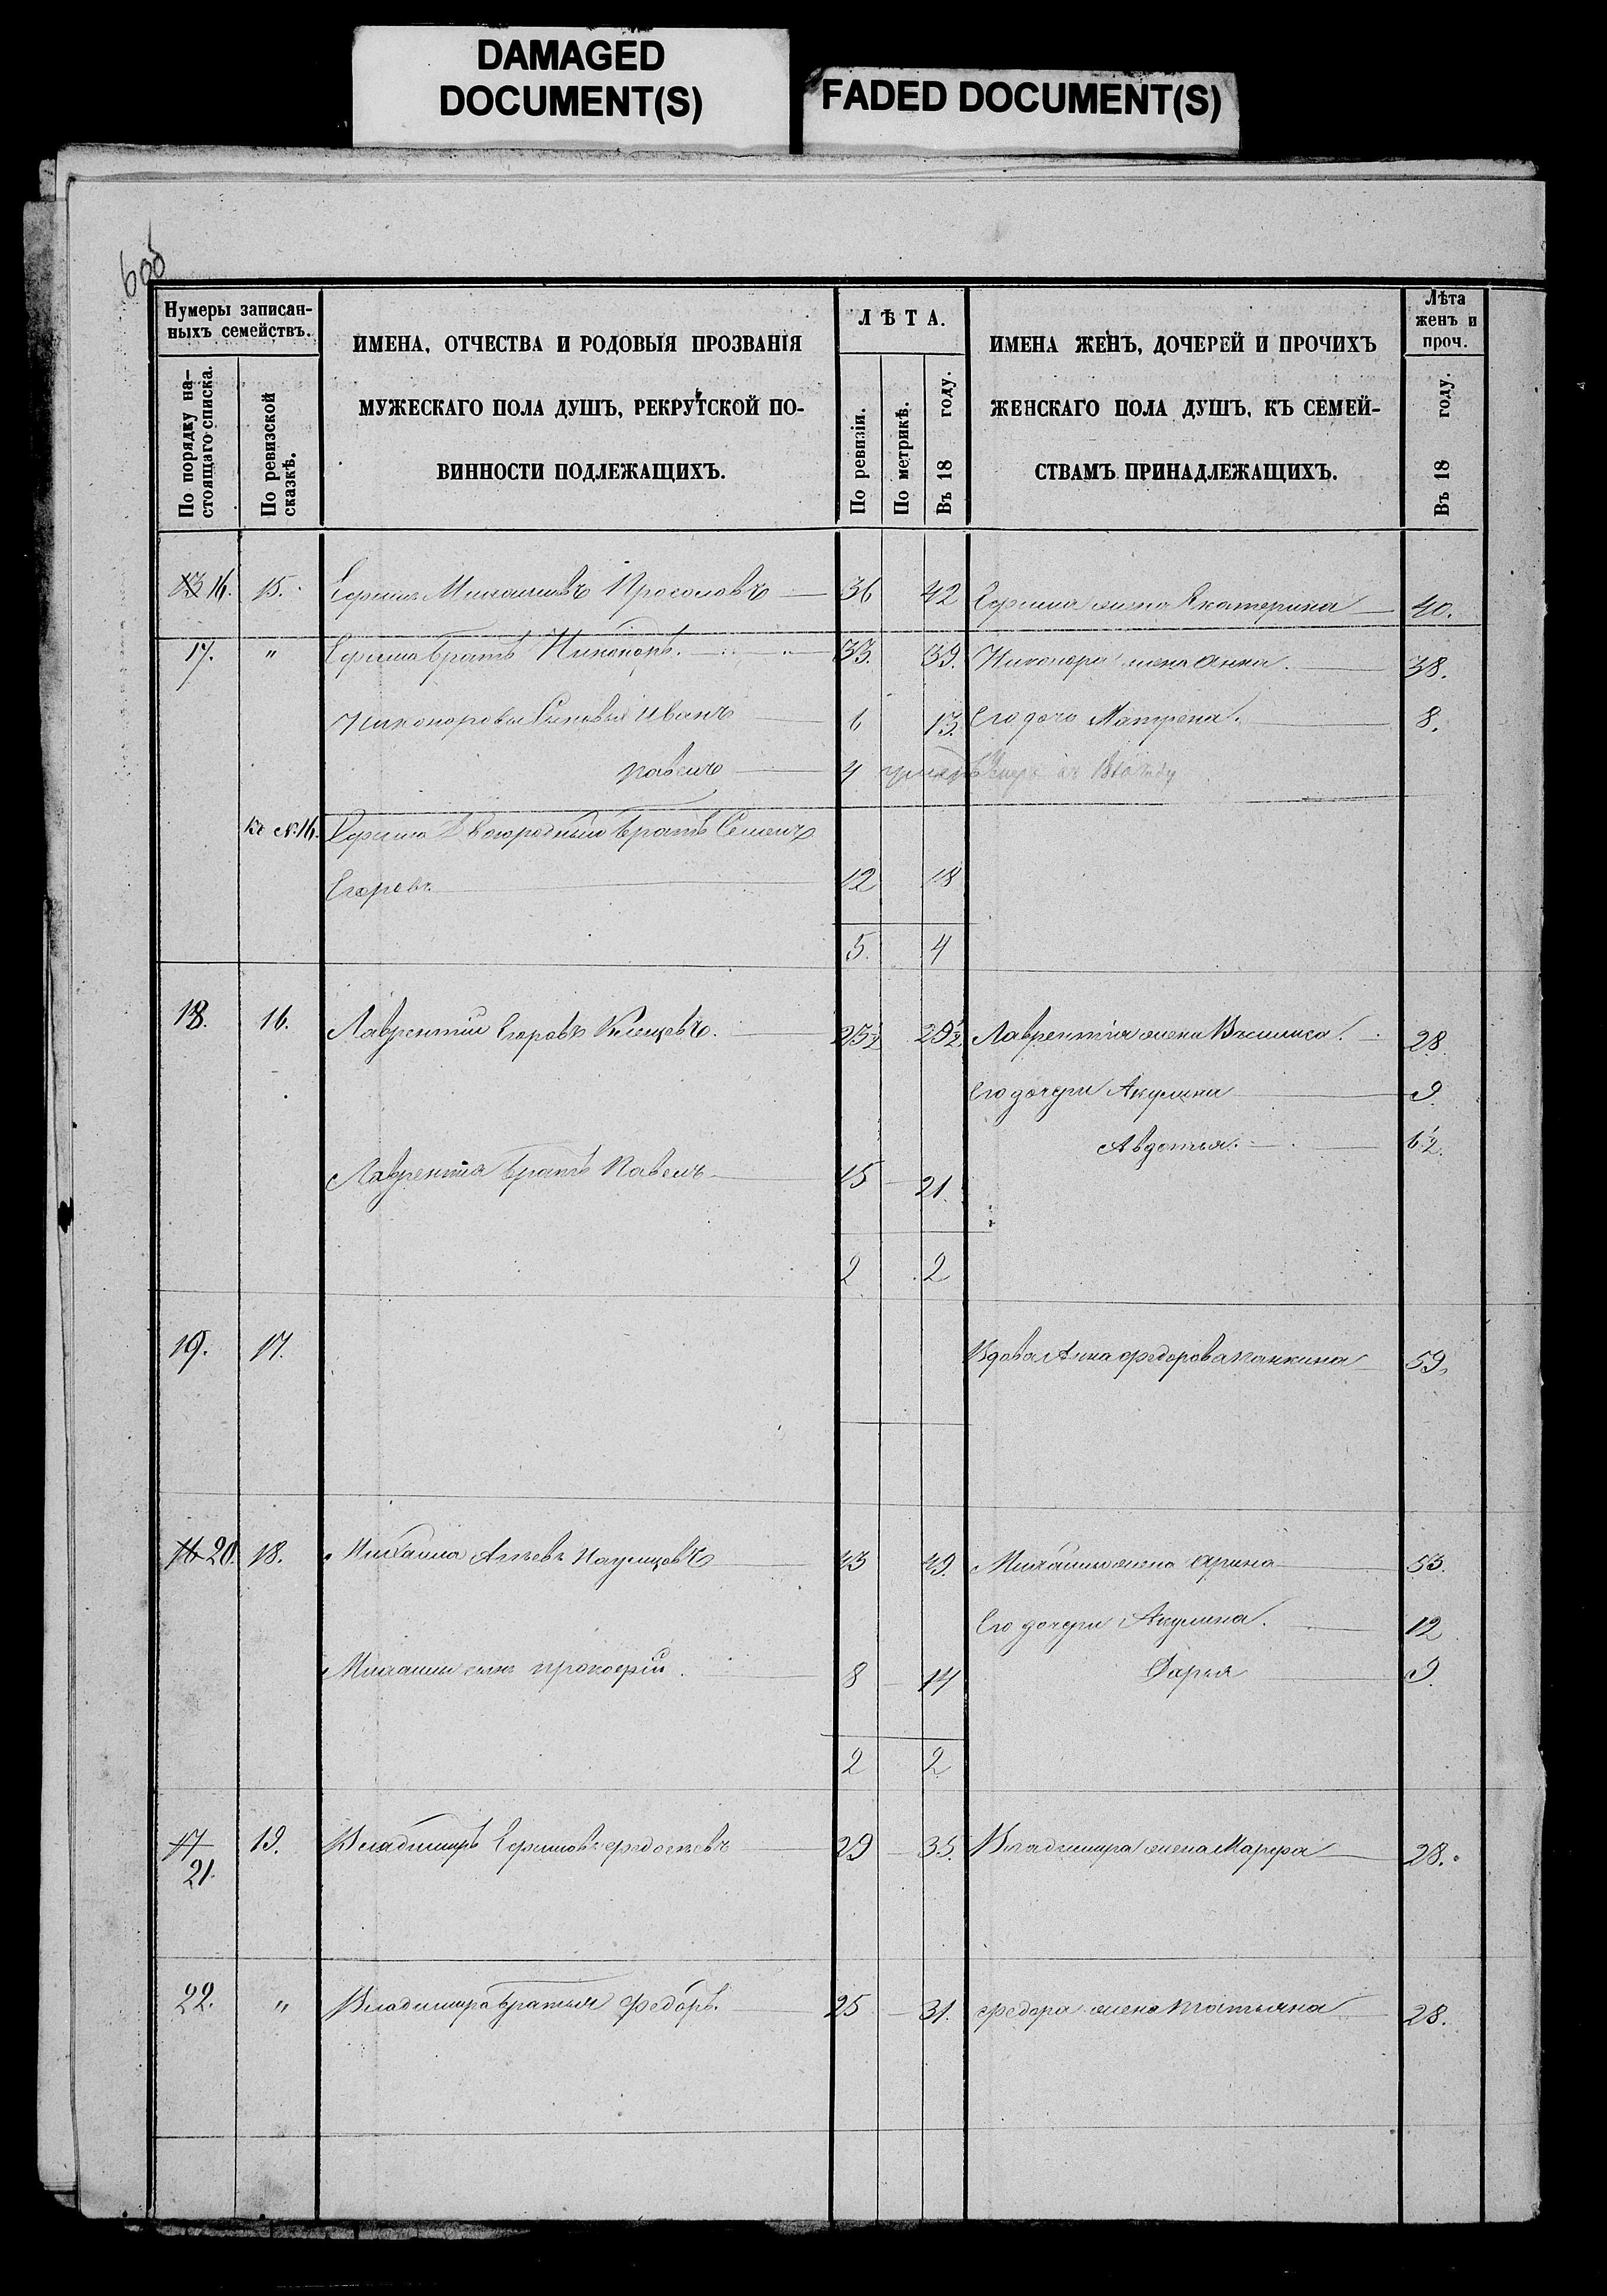 DAMAGED
DOCUMENT(S)
FADED DOCUMENT(S)
Нумеры записан-
ныхъ семействъ.
По порядку на-
стоящаго списка.
По ревизской
сказкѣ.
ИМЕНА, ОТЧЕСТВА И РОДОВЫЯ ПРОЗВАНІЯ
МУЖЕСКАГО ПОЛА ДУШЪ, РЕКРУТСКОЙ ПО-
ВИННОСТИ ПОДЛЕЖАЩИХЪ.
ЛѢТА.
По ревизіи.
По метрикѣ.
Въ 18 году.
ИМЕНА ЖЕНЪ, ДОЧЕРЕЙ И ПРОЧИХЪ
ЖЕНСКАГО ПОЛА ДУШЪ, КЪ СЕМЕЙ-
СТВАМЪ ПРИНАДЛЕЖАЩИХЪ.
Лѣта
женъ и
проч.
Въ 18 году.
16. 15. Ефимъ Михайловъ 36 42 Ефима жена Екатерина 40.
17. " Ефима братъ Никоноръ. 33. 39. Никонора жена Анна. 38.
Никоноровы сыновья Иванъ 6 13. Его дочь Матрена. 8.
Павелъ 4
Къ №16. Ефима двоюродный братъ Семенъ
Егоровъ 12 18
5. 4
18. 16. Лаврентий Егоровъ 23½ 29½ Лаврентія жена Василиса. 28.
Его дочери Акулина 9.
Авдотья. 6½.
Лаврентія братъ Павелъ 15 21.
2 2
19. 17. Вдова Анна Федорова 59.
16 20. 18. Михаила 43 49. Михайлы жена Арина 53.
Его дочери Акулина. 12
Михайлы сынъ Прокофій. 8 14 Дарья 9.
2 2
17 19. Владимиръ Ефимовъ Федосѣевъ 29 35. Владимира жена Марфа 28.
21.
22. " Владимира братья Федоръ. 25 31. Федора жена Татьяна 28.